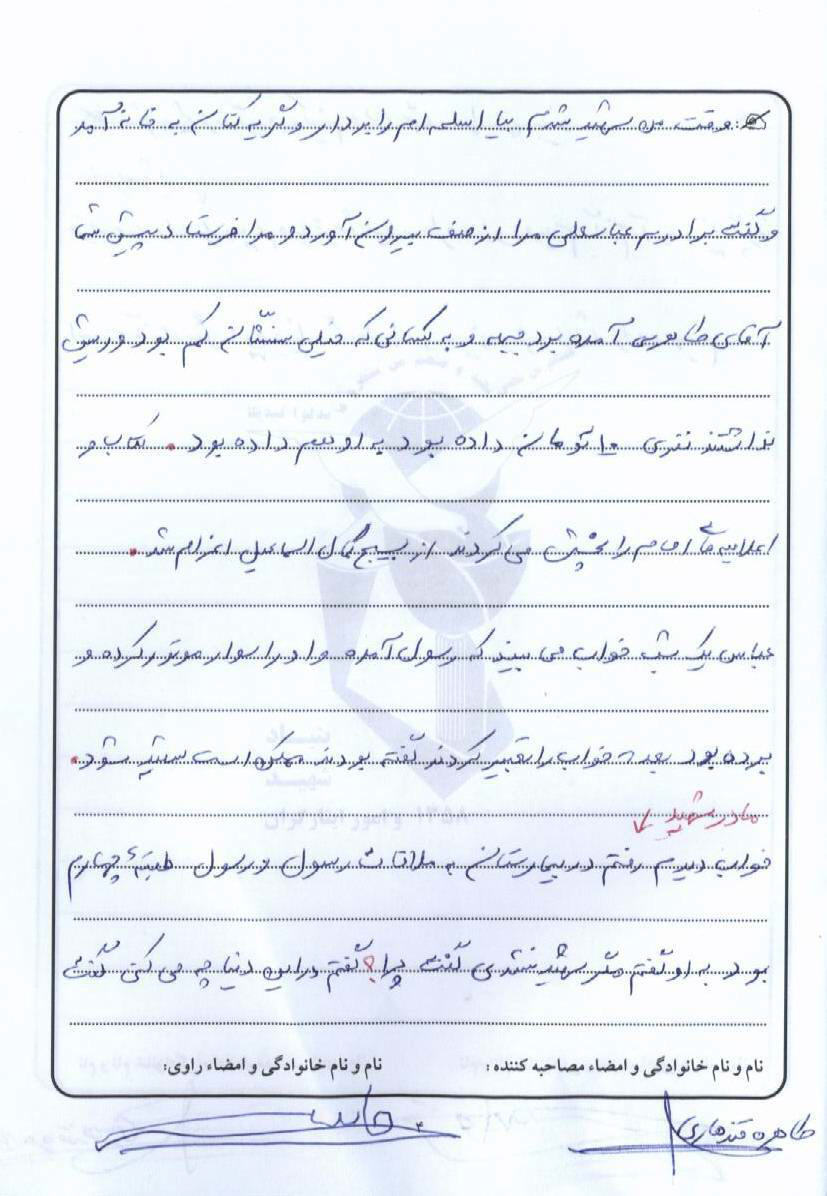 : وقت من شهید شدم بیا اسلحه ام را بردار و گریه کنان به خانه آمد
و گفت برادرم عباسعلی مرا از صف بیرون آورد و مرا فرستاد پیش شما
آقای طاهری آمده برد جبهه و به کسانی که خیلی سنشان کم بود و ریش
نداشتند نفری ۱۰ تومان داده بود به او هم داده بود . کتاب و
اعلامیه های امام را پخش می کردند از بسیج کمال اسماعیل اعزام شد .
عباس یک شب خواب می بیند که رسول آمده و او را سوار موتور کرده و
برده بود بعد خواب را تعبیر کردند گفته بودند ممکن است شهید شود .
مادر شهید
خواب دیدم رفتم در بیمارستان به ملاقات رسول و رسول طبقهٔ چهارم
بود به او گفتم مگر شهید نشدی گفت چرا؟ گفتم در این دنیا چه می کنی گفت
نام و نام خانوادگی و امضاء مصاحبه کننده : نام و نام خانوادگی و امضاء راوی:
طاهره قندهاری